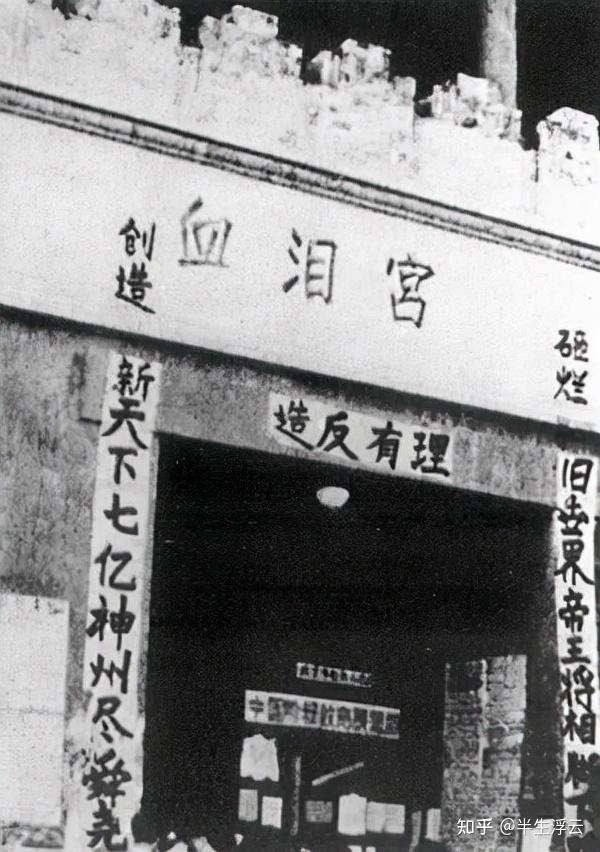 血泪宫
造反有理
砸烂
旧世界帝王将相
创造
新天下七亿神州尽舜尧
知乎 @半生浮云